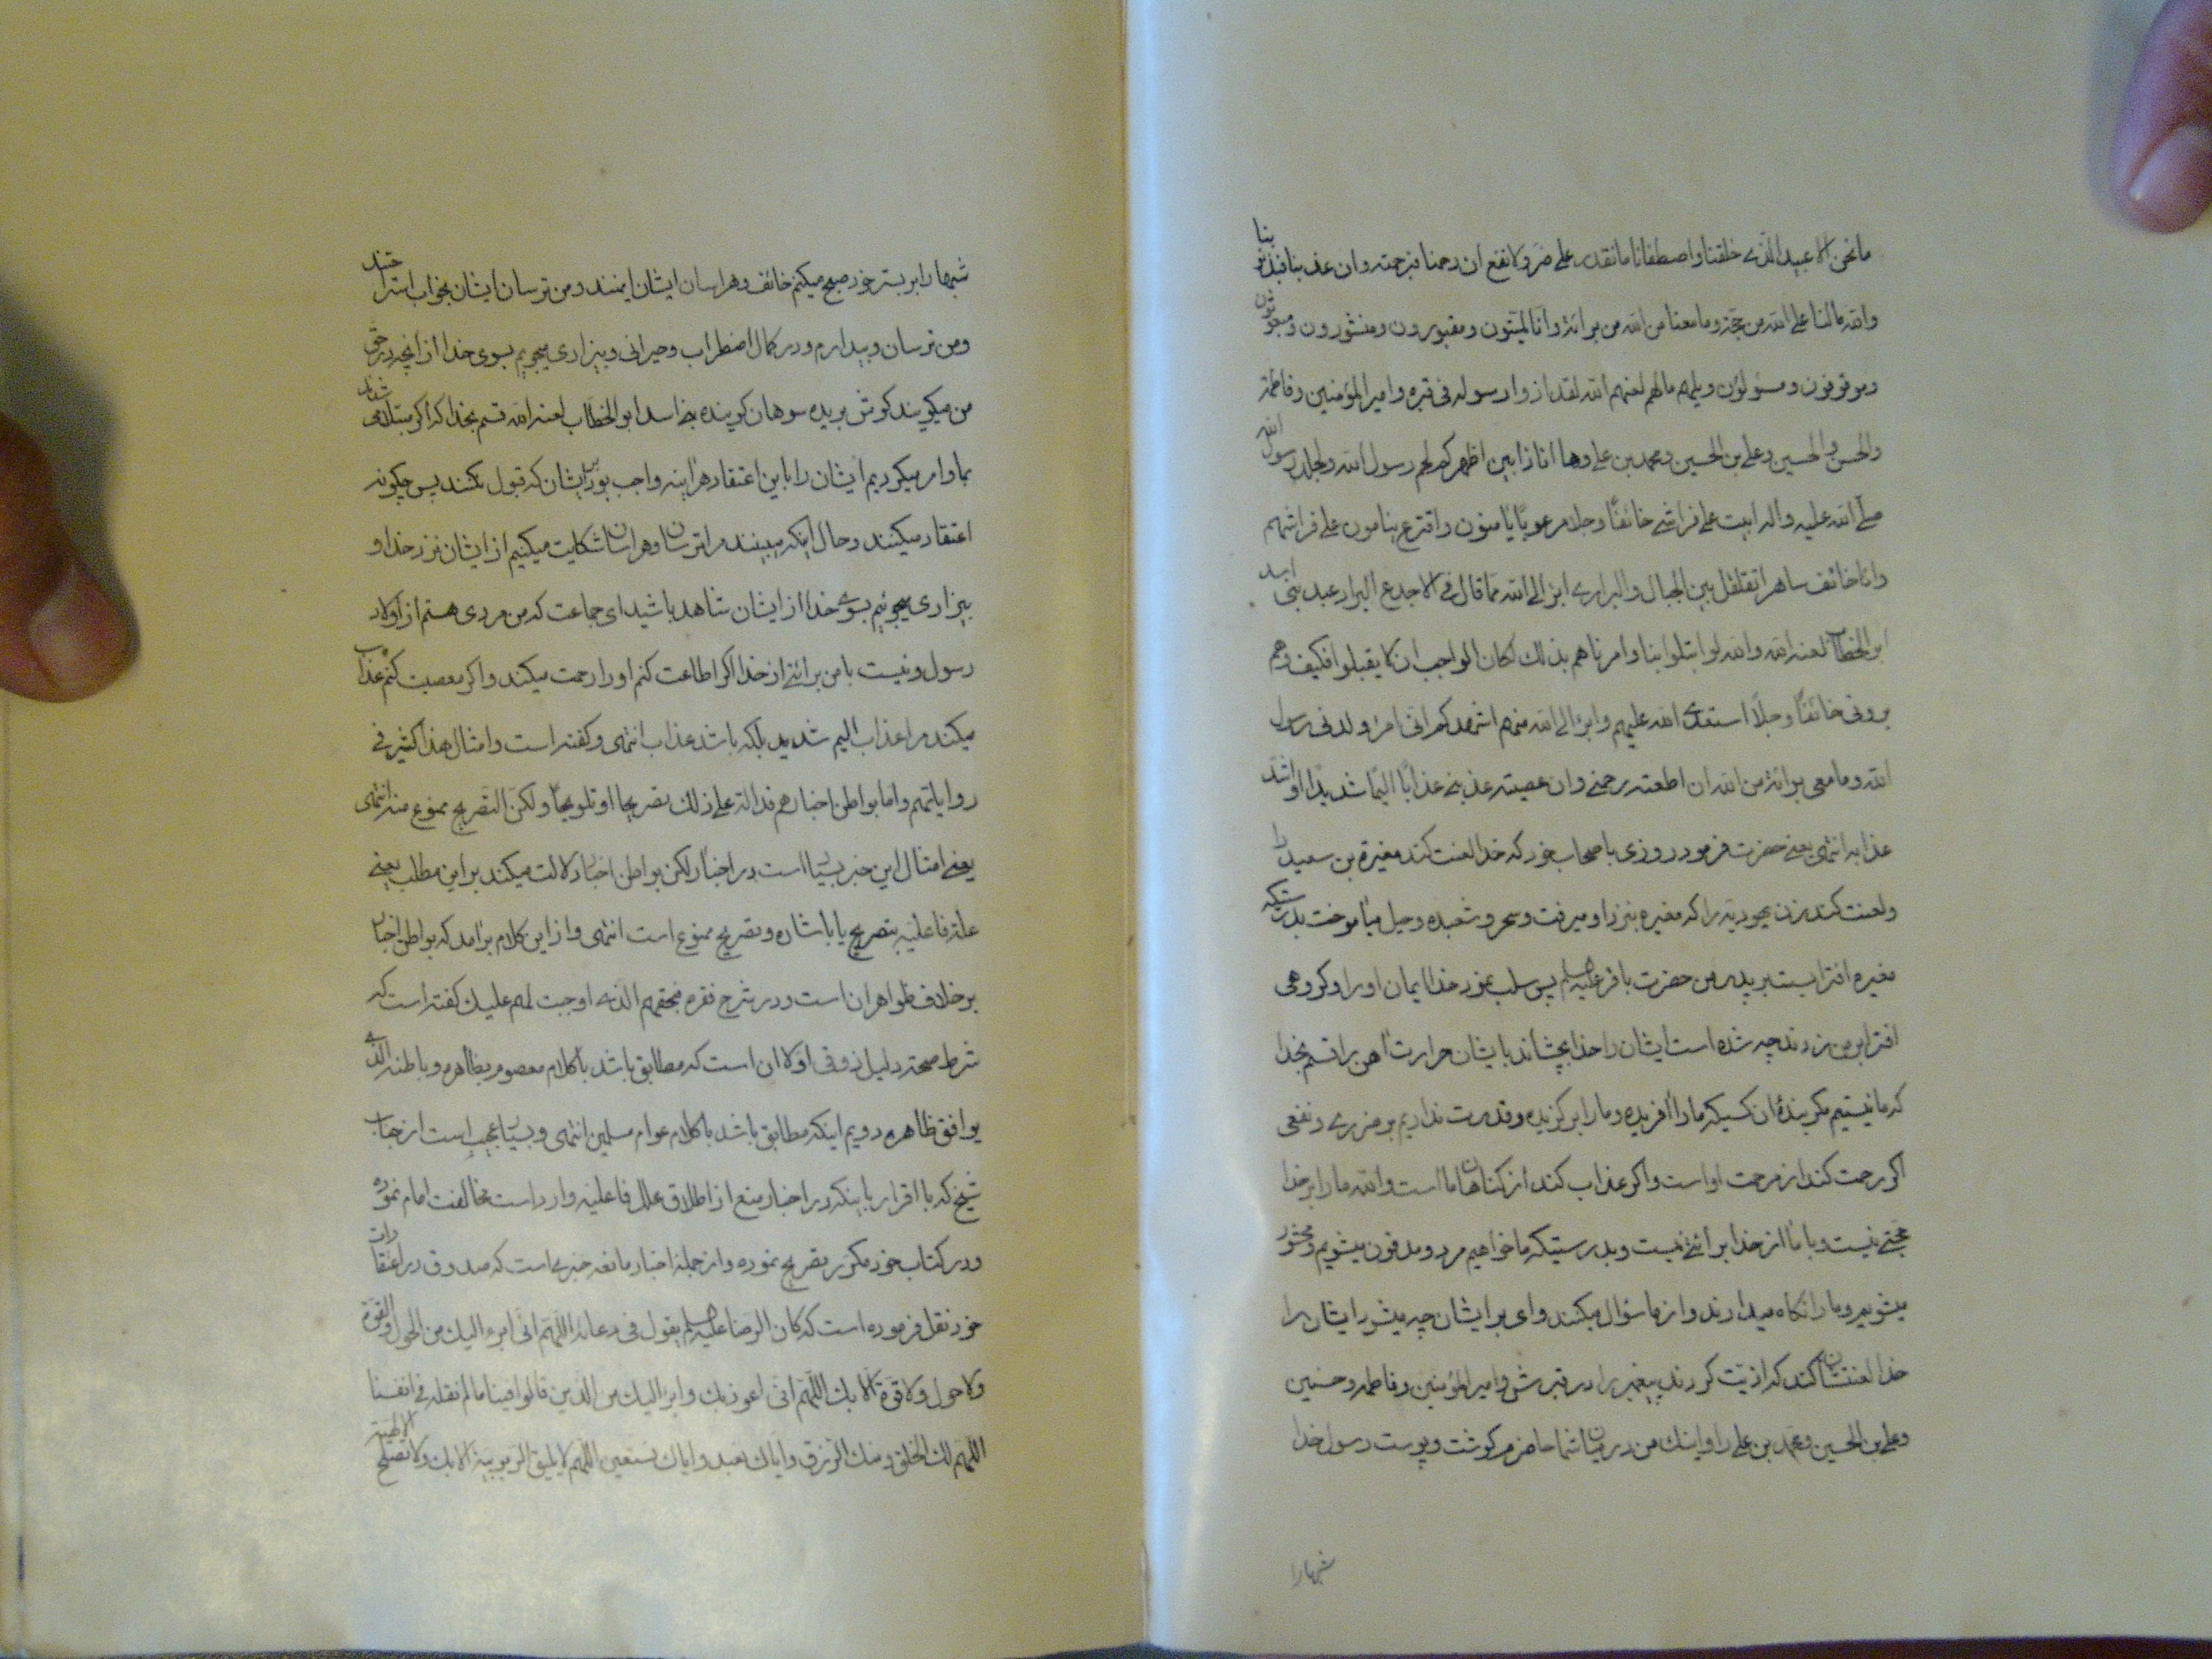 ما نحن الا عبید الذی خلقنا واصطفانا ما نقدر علی ضر ولا نفع ان رحمنا فبرحمته وان عذبنا فبذنوبنا
والله ما لنا علی الله من حجة وما معنا من الله من برائة وانا لمیتون ومقبورون ومنشورون ومبعوثون
وموقوفون ومسئولون ویلهم ما لهم لعنهم الله لقد اذوا رسوله فی قبره وامیر المؤمنین وفاطمة
والحسن والحسین وعلی بن الحسین ومحمد بن علی وها انا ذا بین اظهرکم لحم رسول الله وجلد رسول الله
صلی الله علیه واله ابیت علی فراشی خائفا وجلا مرعوبا یامنون وافزع ینامون علی فراشهم
وانا خائف ساهر اتقلقل بین الجبال والبراری ابرء الی الله مما قال فی الاجدع البراد عبد بنی اسد
ابو الخطاب لعنه الله والله لو ابتلوا بنا وامرناهم بذلک لکان الواجب ان لا یقبلوا فکیف وهم
یرونی خائفا وجلا استعدی الله علیهم وابرء الی الله منهم اشهدکم انی امرء ولدنی رسول
الله وما معی برائة من الله ان اطعته رحمنی وان عصیته عذبنی عذابا الیما شدیدا او اشد
عذابه انتهی یعنی حضرت فرمود روزی باصحاب خود که خدا لعنت کند مغیرة بن سعید را
ولعنت کند زن یهودیه را که مغیره بنزد او میرفت وسحر وشعبده وحیل میاموخت بدرستیکه
مغیره افترا بست بر پدر من حضرت باقر علیه السلم پس سلب نمود خدا ایمان او را وکروهی
افترا بر من زدند چه شده است ایشان را خدا بچشاند بایشان حرارت اهن را قسم بخدا
که ما نیستیم مکر بنده ان کسیکه ما را افریده وما را برکزیده وقدرت نداریم بر ضرری ونفعی
اکر رحمت کند از مرحمت او است واکر عذاب کند از کناهان ما است والله ما را بر خدا
حجتی نیست وبا ما از خدا برائتی نیست وبدرستیکه ما خواهیم مرد ومدفون میشویم ومحشور
میشویم وما را نکاه میدارند واز ما سؤال میکنند وای بر ایشان چه میشود ایشان را
خدا لعنتشان کند که اذیت کردند پیغمبر را در قبرش وامیر المؤمنین وفاطمه وحسنین
وعلی بن الحسین ومحمد بن علی را واینک من در میان شما حاضرم کوشت وپوست رسول خدا
شبها را
شبها را بر بستر خود صبح میکنم خائف وهراسان ایشان ایمنند ومن ترسان ایشان بخواب استراحتند
ومن ترسان وبیدارم ودر کمال اضطراب وحیرانی وبیزاری میجویم بسوی خدا از انچه در حق
من میکویند کوش بریده سوهان کوبنده بنی اسد ابو الخطاب لعنه الله قسم بخدا که اکر مبتلا میشدند
بما وامر میکردیم ایشان را باین اعتقاد هراینه واجب بود بر ایشان که قبول نکنند پس چکونه
اعتقاد میکنند وحال اینکه میبینند مرا ترسان وهراسان شکایت میکنیم از ایشان نزد خدا و
بیزاری میجوئیم بسوی خدا از ایشان شاهد باشید ای جماعت که من مردی هستم از اولاد
رسول ونیست با من برائتی از خدا اکر اطاعت کنم او را رحمت میکند واکر معصیت کنم عذاب
میکند مرا عذاب الیم شدید بلکه باشد عذاب انتهی وکفته است وامثال هذا کثیر فی
روایاتهم واما بواطن اخبارهم فدالة علی ذلک تصریحا او تلویحا ولکن التصریح ممنوع منه انتهی
یعنی امثال این خبر بسیار است در اخبار لکن بواطن اخبار دلالت میکند بر این مطلب یعنی
علة فاعلیه بتصریح یا باشاره وتصریح ممنوع است انتهی واز این کلام برامد که بواطن اخبار
برخلاف ظواهر ان است ودر شرح فقره فبحقهم الذی اوجبت لهم علیک کفته است که
شرط صحة دلیل ذوقی اولا ان است که مطابق باشد با کلام معصوم بظاهره وباطنه الذی
یوافق ظاهره دویم اینکه مطابق باشد با کلام عوام مسلمین انتهی وبسیار عجیب است از جناب
شیخ که با اقرار باینکه در اخبار منع از اطلاق علل فاعلیه وارد است مخالفت امام نموده
ودر کتاب خود مکرر تصریح نموده واز جمله اخبار مانعه خبری است که صدوق در اعتقادات
خود نقل فرموده است که کان الرضا علیه السلم یقول فی دعائه اللهم انی ابرء الیک من الحول والقوة
ولا حول ولا قوة الا بک اللهم انی اعوذ بک وابرء الیک من الذین قالوا فینا ما لم نقله فی انفسنا
اللهم لک الخلق ومنک الرزق وایاک نعبد وایاک نستعین اللهم لا یلیق الربوبیة الا بک ولا تصلح الالهیة